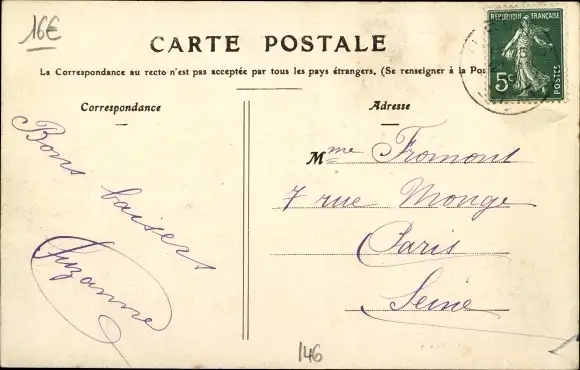 16€
CARTE POSTALE
RÉPUBLIQUE FRANÇAISE
5c
POSTES
La Correspondance au recto n'est pas acceptée par tous les pays étrangers. (Se renseigner à la Pos
Correspondance
Adresse
Bons baisers
Suzanne
Mme Fromont
7 rue Monge
Paris
Seine
146